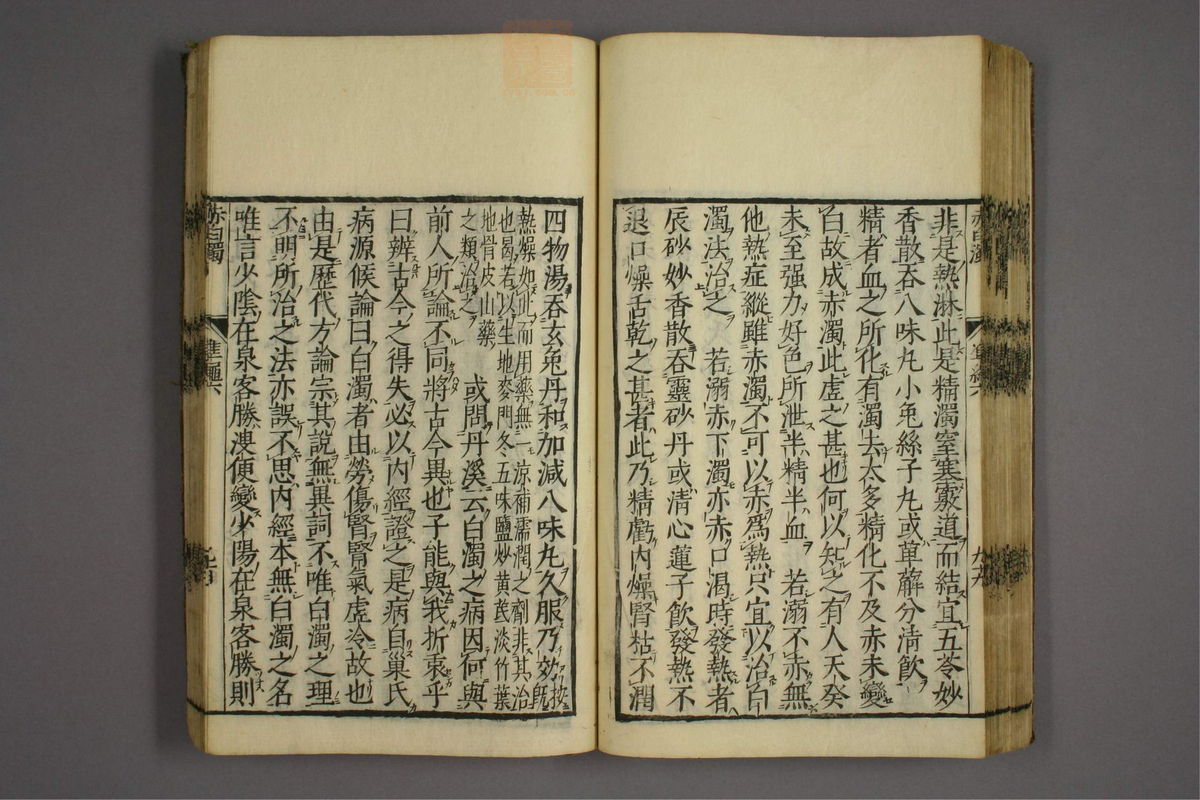 非是熱淋此是精濁窒塞竅道而結宜五苓妙
香散吞八味丸小兔絲子丸或萆薢分清飲
精者血之所化有濁去太多精化不及赤未變
白故成赤濁此虛之甚也何以知之有人天癸
未至强力好色所泄半精半血　若溺不赤無
他熱症縱雖赤濁不可以赤爲熱只宜以治白
濁法治之　若溺赤下濁亦赤口渴時發熱者
辰砂妙香散吞靈砂丹或清心蓮子飲發熱不
退口燥舌乾之甚者此乃精虧內燥腎枯不潤
四物湯吞玄兔丹和加減八味丸久服乃効按既
熱燥如此而用藥無一涼補濡潤之劑非其治
也曷若以生地麥門冬五味鹽炒黄芪淡竹葉
地骨皮山藥
之類治之　或問丹溪云白濁之病因何與
前人所論不同將古今異也子能與我折衷乎
曰辨古今之得失必以内經證之是病自巢氏
病源候論曰白濁者由勞傷腎腎氣虛冷故也
由是歷代方論宗其說無異詞不唯白濁之理
不明所治之法亦誤不思内經本無白濁之名
唯言少陰在泉客勝溲便變少陽在泉客勝則
赤白濁